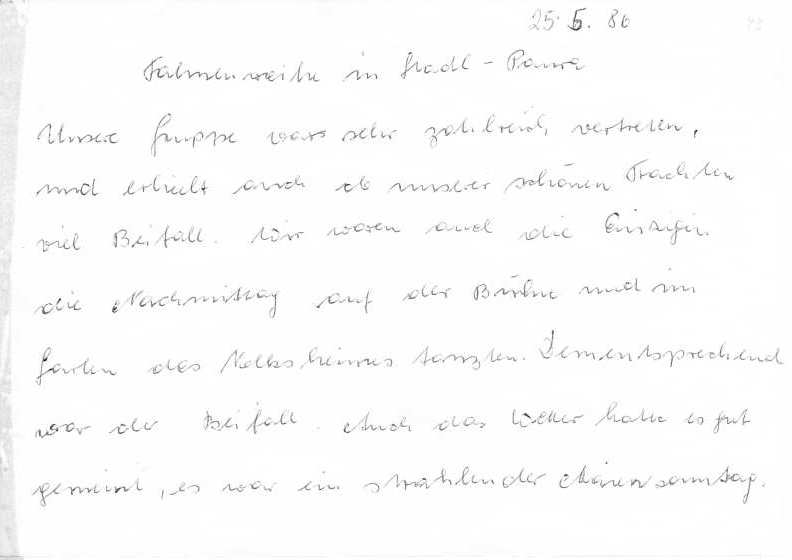 25.5.86
Fahnenweihe in Stadl-Paura
Unsere Gruppe war sehr zahlreich vertreten,
und erhielt auch ob unserer schönen Trachten
viel Beifall. Wir waren auch die Einzigen
die Nachmittag auf der Bühne und im
Garten des Volksheimes tanzten. Dementsprechend
war der Beifall. Auch das Wetter hatte es gut
gemeint, es war ein strahlender Maiensonntag.